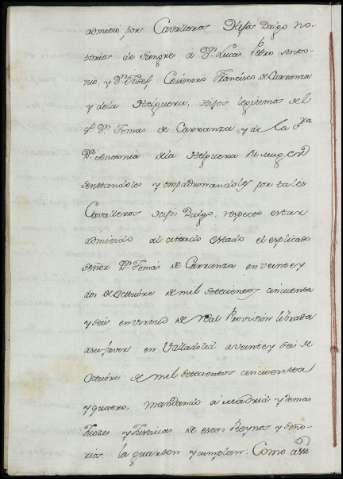 admitio, por Cavalleros Hijos Dalgo no
torios de Sangre a Dn. Lucas Pedro Anto
nio, y Dn. Josef Francisco de Carranza
y de la Helguera, hijos lexitimos del
Sr. Dn. Tomas de Carranza, y de la Sra.
Dn. Antonia de la Helguera su muger,
sentandoles y empadronandoles por tales
Cavalleros hijos Dalgo, respecto estar
admitido al citado estado el expresado
Señor Dn. Tomás de Carranza en veinte y
dos de Octubre de mil setecientos cincuenta
y seis en virtud de Real Provision librada
a su favor en Valladolid a veinte y seis de
Octubre de mil setecientos cincuenta
y quatro, mandando a Madrid y demas
Ciudades y Justicias de estos Reynos y Seño
rios la guarden y cumplan. Como